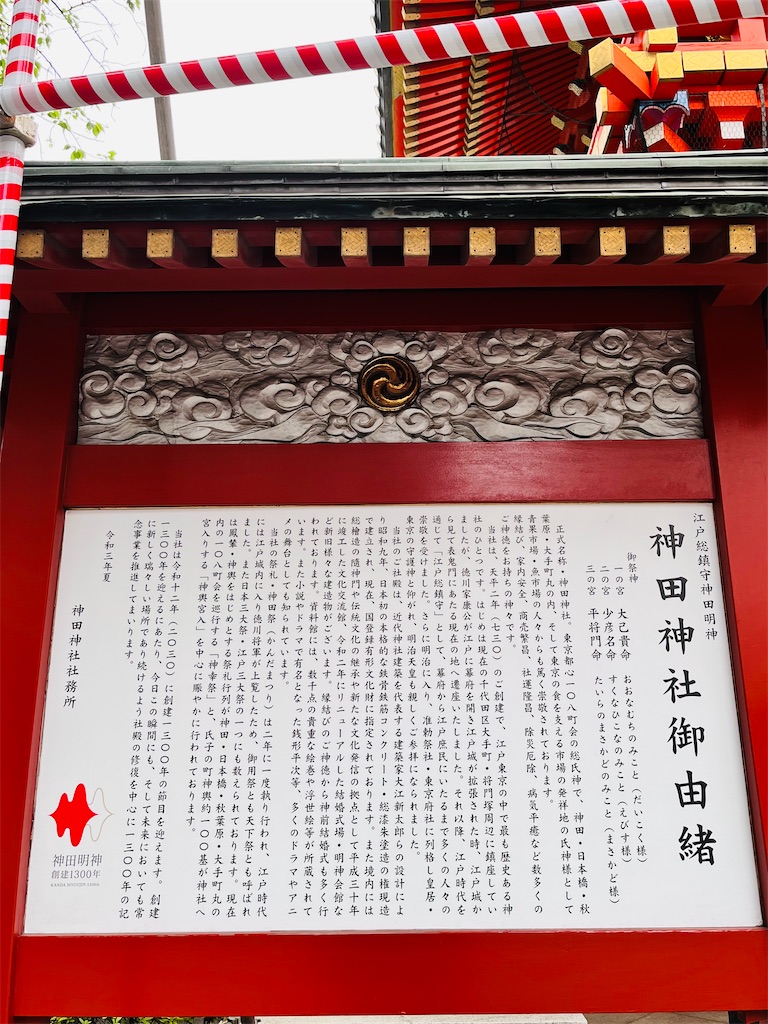 江戸総鎮守神田明神
神田神社御由緒
御祭神
一の宮 大己貴命 おおなむちのみこと（だいこく様）
二の宮 少彦名命 すくなひこなのみこと（えびす様）
三の宮 平将門命 たいらのまさかどのみこと（まさかど様）
正式名称・神田神社。東京都心一〇八町会の総氏神で、神田・日本橋・秋
葉原・大手町丸の内、そして東京の食を支える市場の発祥地の氏神様として
青果市場・魚市場の人々からも篤く崇敬されております。
縁結び、家内安全、商売繁昌、社運隆昌、除災厄除、病気平癒など数多くの
ご神徳をお持ちの神々です。
当社は、天平二年（七三〇）のご創建で、江戸東京の中で最も歴史ある神
社のひとつです。はじめは現在の千代田区大手町・将門塚周辺に鎮座してい
ましたが、徳川家康公が江戸に幕府を開き江戸城が拡張された時、江戸城か
ら見て表鬼門にあたる現在の地へ遷座いたしました。それ以降、江戸時代を
通じて「江戸総鎮守」として、幕府から江戸庶民にいたるまで多くの人々の
崇敬を受けました。さらに明治に入り、准勅祭社・東京府社に列格し皇居・
東京の守護神と仰がれ、明治天皇も親しくご参拝になられました。
当社のご社殿は、近代神社建築を代表する建築家大江新太郎らの設計によ
り昭和九年、日本初の本格的な鉄骨鉄筋コンクリート・総漆朱塗造の権現造
で建立され、現在、国登録有形文化財に指定されております。また境内には
総檜造の隨神門や伝統文化の継承や新たな文化発信の拠点として平成三十年
に竣工した文化交流館、令和二年にリニューアルした結婚式場・明神会館な
ど新旧様々な建造物がございます。縁結びのご神徳から神前結婚式も多く行
われております。資料館には、数千点の貴重な絵巻や浮世絵等が所蔵されて
います。また小説やドラマで有名となった銭形平次等、多くのドラマやアニ
メの舞台としても知られています。
当社の祭礼・神田祭（かんだまつり）は二年に一度執り行われ、江戸時代
には江戸城内に入り徳川将軍が上覧したため、御用祭とも天下祭とも呼ばれ
ました。また日本三大祭・江戸三大祭の一つにも数えられております。現在
は鳳輦・神輿をはじめとする祭礼行列が神田・日本橋・秋葉原・大手町丸の
内の一〇八町会を巡行する「神幸祭」と、氏子の町神輿約一〇〇基が神社へ
宮入りする「神輿宮入」を中心に賑やかに行われております。
当社は令和十二年（二〇三〇）に創建一三〇〇年の節目を迎えます。創建
一三〇〇年を迎えるにあたり、今日この瞬間にも、そして未来においても常
に新しく瑞々しい場所であり続けるよう社殿の修復を中心に一三〇〇年の記
念事業を推進してまいります。
令和三年夏
神田神社社務所
神田明神
創建1300年
KANDA MYOUJIN 1300th